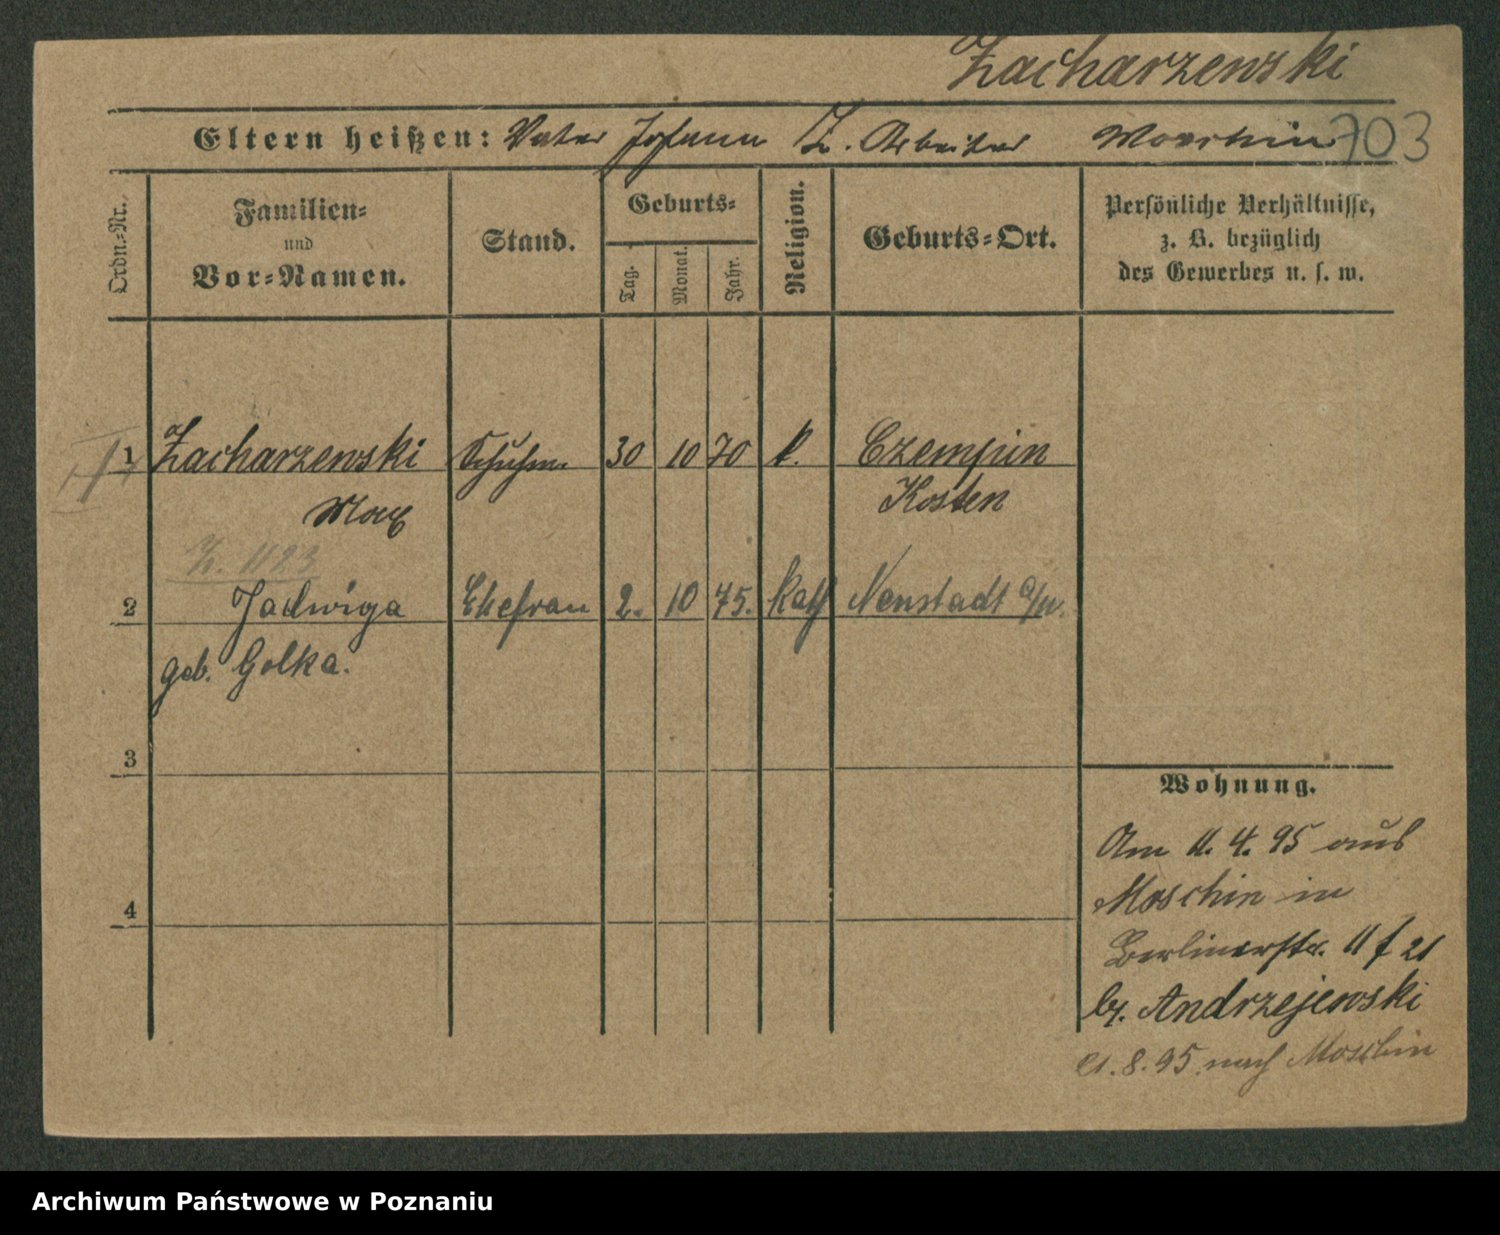 Zacharzewski
Eltern heißen: Vater Johann Z. Arbeiter Moschin 703
Ordn.-Nr.
Familien-
und
Vor-Namen.
Stand.
Geburts-
Tag.
Monat.
Jahr.
Religion.
Geburts-Ort.
Persönliche Verhältnisse,
z. B. bezüglich
des Gewerbes u. s. w.
1 Zacharzewski Schuhm. 30 10 70 k. Czempin
Max Kosten
Z. 1123
2 Jadwiga Ehefrau 2. 10 75. kath Neustadt a/w.
geb. Golka.
3
4
Wohnung.
Am 11. 4. 95 aus
Moschin in
Berlinerstr. 11 f 21
by. Andrzejewski
21. 8. 95 nach Moschin
Archiwum Państwowe w Poznaniu